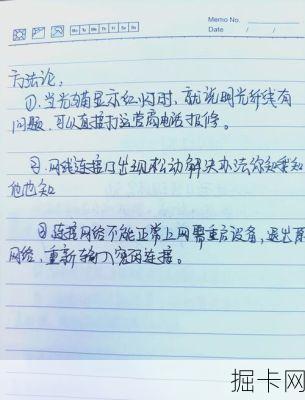 Memo No.
Mo Tu We Th Fr Sa Su
Date / /
方法论,
①. 当光猫显示红灯时, 就说明光纤线有
问题, 可以直接打运营商电话报修。
②. 网线连接口出现松动解决办法你知我知
他也知
③ 连接网络不能正常上网需重启设备, 退出原
网络, 重新输入密码连接。
掘卡网